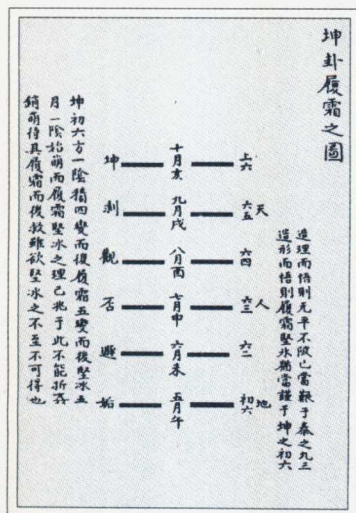 坤卦履霜之圖
造理而悟則无平不陂已當艱于泰之九三
造形而悟則履霜堅氷猶當謹于坤之初六
天
人
地
上六
六五
六四
六三
六二
初六
十月亥
九月戌
八月酉
七月申
六月未
五月午
坤
剥
觀
否
遯
姤
坤初六方一陰積四變而後履霜五變而後堅冰五
月一陰始萌而履霜堅冰之理已兆于此不能折
銷萌待其履霜而後救雖欲堅冰之不至不可得也